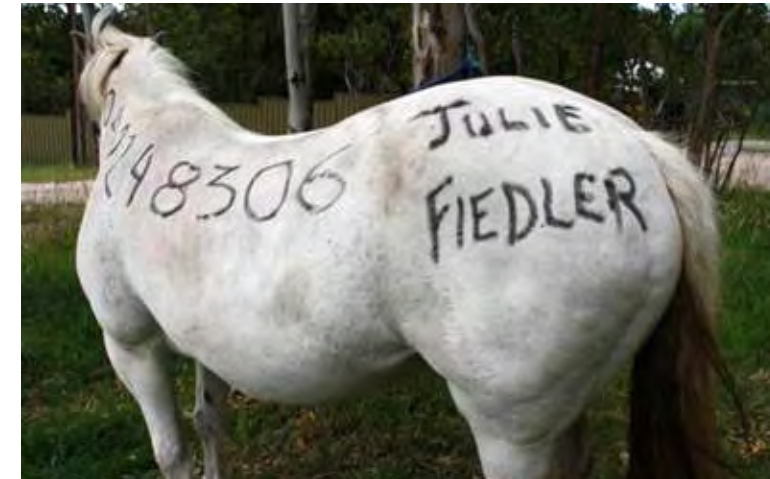 48306
JULIE
FIEDLER